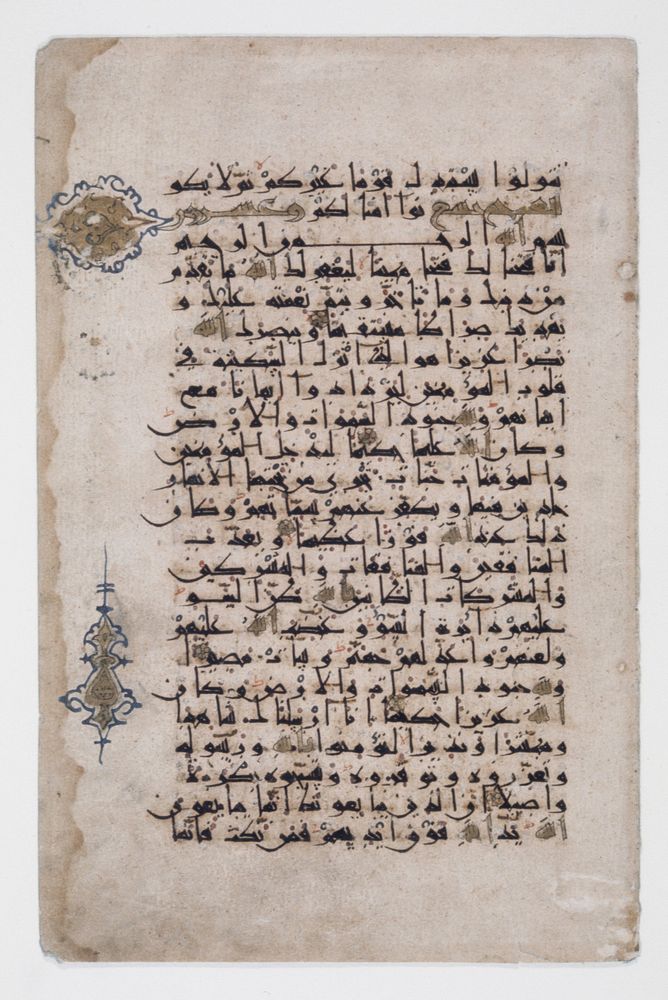 تتولوا يستبدل قوما غيركم ثم لا يكو
الفتح تسع نوا امثالكم وعشرون
بسم الله الرحمن الرحيم
انا فتحنا لك فتحا مبينا ليغفر لك الله ما تقدم
من ذنبك وما تاخر ويتم نعمته عليك و
يهديك صراطا مستقيما وينصرك الله
نصرا عزيزا هو الذي انزل السكينة في
قلوب المؤمنين ليزدادوا ايمانا مع
ايمانهم ولله جنود السموات والارض
وكان الله عليما حكيما ليدخل المؤمنين
والمؤمنات جنات تجري من تحتها الانهار
خالدين فيها ويكفر عنهم سياتهم وكان
ذلك عند الله فوزا عظيما ويعذب
المنافقين والمنافقات والمشركين
والمشركات الظانين بالله ظن السو
عليهم دائرة السوء وغضب الله عليهم
ولعنهم واعد لهم جهنم وساءت مصيرا
ولله جنود السموات والارض وكان
الله عزيزا حكيما انا ارسلناك شاهدا
ومبشرا ونذيرا لتؤمنوا بالله ورسوله
وتعزروه وتوقروه وتسبحوه بكرة
واصيلا ان الذين يبايعونك انما يبايعون
الله يد الله فوق ايديهم فمن نكث فانما